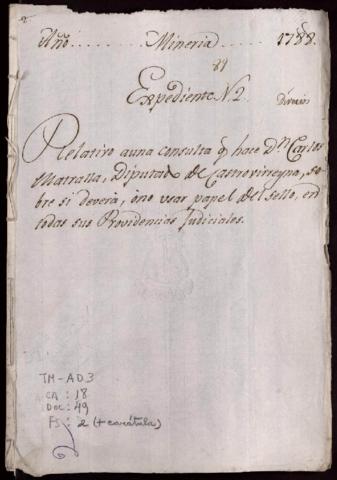 Año........ Mineria ..... 1788.
Expediente N. 2
Relativo auna consulta q hace Dn Carlos
Matralla, Diputado de Castrovirreyna, so-
bre si deverá, ó no usar papel del sello, en
todas sus Providencias Judiciales.
TM-AD3
CA: 18
Doc: 49
Fs: 2 (+ carátula)